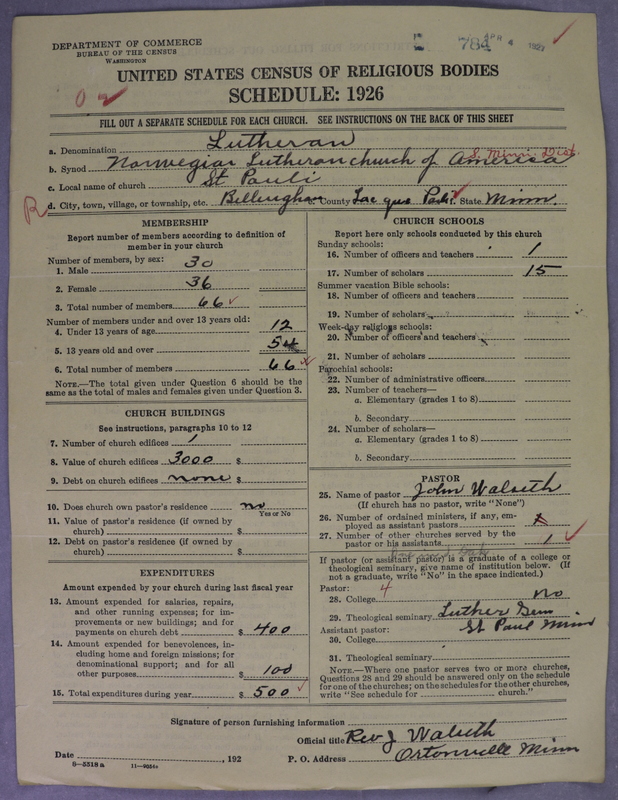 DEPARTMENT OF COMMERCE
BUREAU OF THE CENSUS
WASHINGTON
784 APR 4 1927
UNITED STATES CENSUS OF RELIGIOUS BODIES
SCHEDULE: 1926
FILL OUT A SEPARATE SCHEDULE FOR EACH CHURCH. SEE INSTRUCTIONS ON THE BACK OF THIS SHEET
a. Denomination Lutheran
b. Synod Norwegian Lutheran church of America S. Minn. Dist.
c. Local name of church St Pauli
d. City, town, village, or township, etc. Bellingham County Lac qui Parle State Minn.
MEMBERSHIP
Report number of members according to definition of
member in your church
Number of members, by sex:
1. Male 30
2. Female 36
3. Total number of members 66
Number of members under and over 13 years old:
4. Under 13 years of age 12
5. 13 years old and over 54
6. Total number of members 66
NOTE.—The total given under Question 6 should be the
same as the total of males and females given under Question 3.
CHURCH BUILDINGS
See instructions, paragraphs 10 to 12
7. Number of church edifices 1
8. Value of church edifices 3000 $
9. Debt on church edifices none $
10. Does church own pastor's residence no
Yes or No
11. Value of pastor's residence (if owned by
church) $
12. Debt on pastor's residence (if owned by
church) $
EXPENDITURES
Amount expended by your church during last fiscal year
13. Amount expended for salaries, repairs,
and other running expenses; for im-
provements or new buildings; and for
payments on church debt $ 400
14. Amount expended for benevolences, in-
cluding home and foreign missions; for
denominational support; and for all
other purposes $ 100
15. Total expenditures during year $ 500
CHURCH SCHOOLS
Report here only schools conducted by this church
Sunday schools:
16. Number of officers and teachers 1
17. Number of scholars 15
Summer vacation Bible schools:
18. Number of officers and teachers
19. Number of scholars
Week-day religious schools:
20. Number of officers and teachers
21. Number of scholars
Parochial schools:
22. Number of administrative officers
23. Number of teachers—
a. Elementary (grades 1 to 8)
b. Secondary
24. Number of scholars—
a. Elementary (grades 1 to 8)
b. Secondary
PASTOR
25. Name of pastor John Walseth
(If church has no pastor, write "None")
26. Number of ordained ministers, if any, em-
ployed as assistant pastors
27. Number of other churches served by the
pastor or his assistants 1
If pastor (or assistant pastor) is a graduate of a college or
theological seminary, give name of institution below. (If
not a graduate, write "No" in the space indicated.)
Pastor: 4
28. College no
29. Theological seminary Luther Sem
St Paul Minn
Assistant pastor:
30. College
31. Theological seminary
NOTE.—Where one pastor serves two or more churches,
Questions 28 and 29 should be answered only on the schedule
for one of the churches; on the schedules for the other churches,
write "See schedule for church."
Signature of person furnishing information
Official title Rev J Walseth
Date , 192 P. O. Address Ortonville Minn
8—5518 a 11—9051a